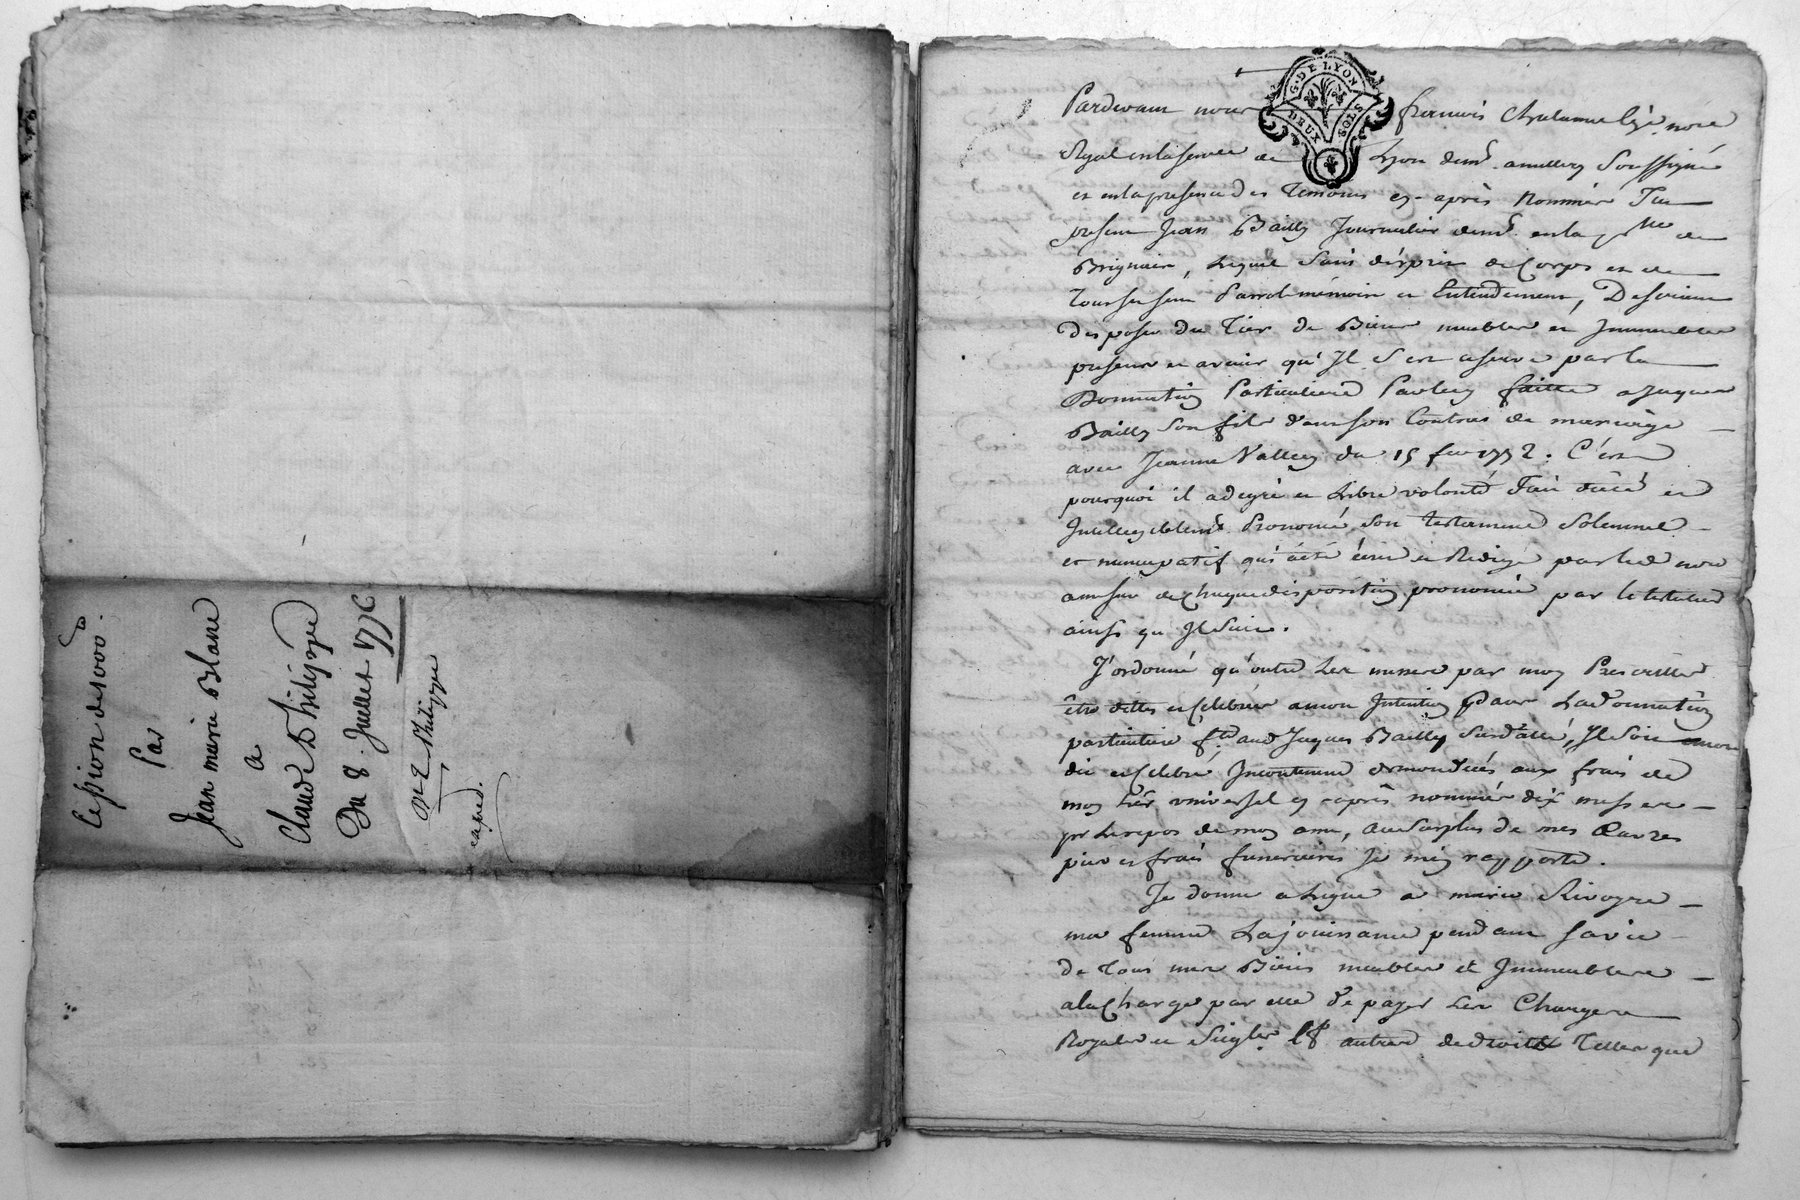 Cession de 1000.
Par
Jean marie Blanc
a
Claude Philippe
Du 8 Juillet 1776
Me Philippe
exped.
G. DE LYON
DEUX SOLS
Pardevant nous francois nore
Royal en la senec de Lyon demt a millery Soussigné
et en la presence des Temoins cy-apres Nommés Fut
present Jean Bailly Journalier demt en la psse de
Brignais, lequel Sain d'esprit de Corps et de
tous ses sens Parrole memoire et Entendement, Desirant
disposer du Tier de Biens meubles et Immeubles
presents et avenir qu'Il s'est reservé par la
Donnation Particuliere Par luy faitte a Jaques
Bailly Son fils dans son Contrat de mariage
avec Jeanne Vallery du 15 fev 1772. C'est
pourquoi il a de gré et Libre volonté Fait dicté et
Intelligiblemt Prononcé son testament Solemnel
et nuncupatif qui a été écrit et Redigé par led nore
a mesure de chaque disposition prononcée par le testateur
ainsy qu'Il suit.
J'ordonne qu'outre Les messes par moy Prescrittes
être dittes et Celebrées a mon Intention Dans La donnation
particuliere fte aud Jaques Bailly Susdatté, Il soit encore
dit et Celebré Incontinent dèmon decés aux frais de
moy her universel cy après nommée dix messes
pr Le repos de moy ame, au Surplus de mes Œuvres
pies et frais funeraires Je m'en rapporte.
Je donne et Legue a marie Rivoyre
ma femme La jouissance pendant sa vie
de tous mes Biens meubles et Immeubles
a la Charge par elle de payer Les Charges
Royales et Seigles et autres de droit Telles que